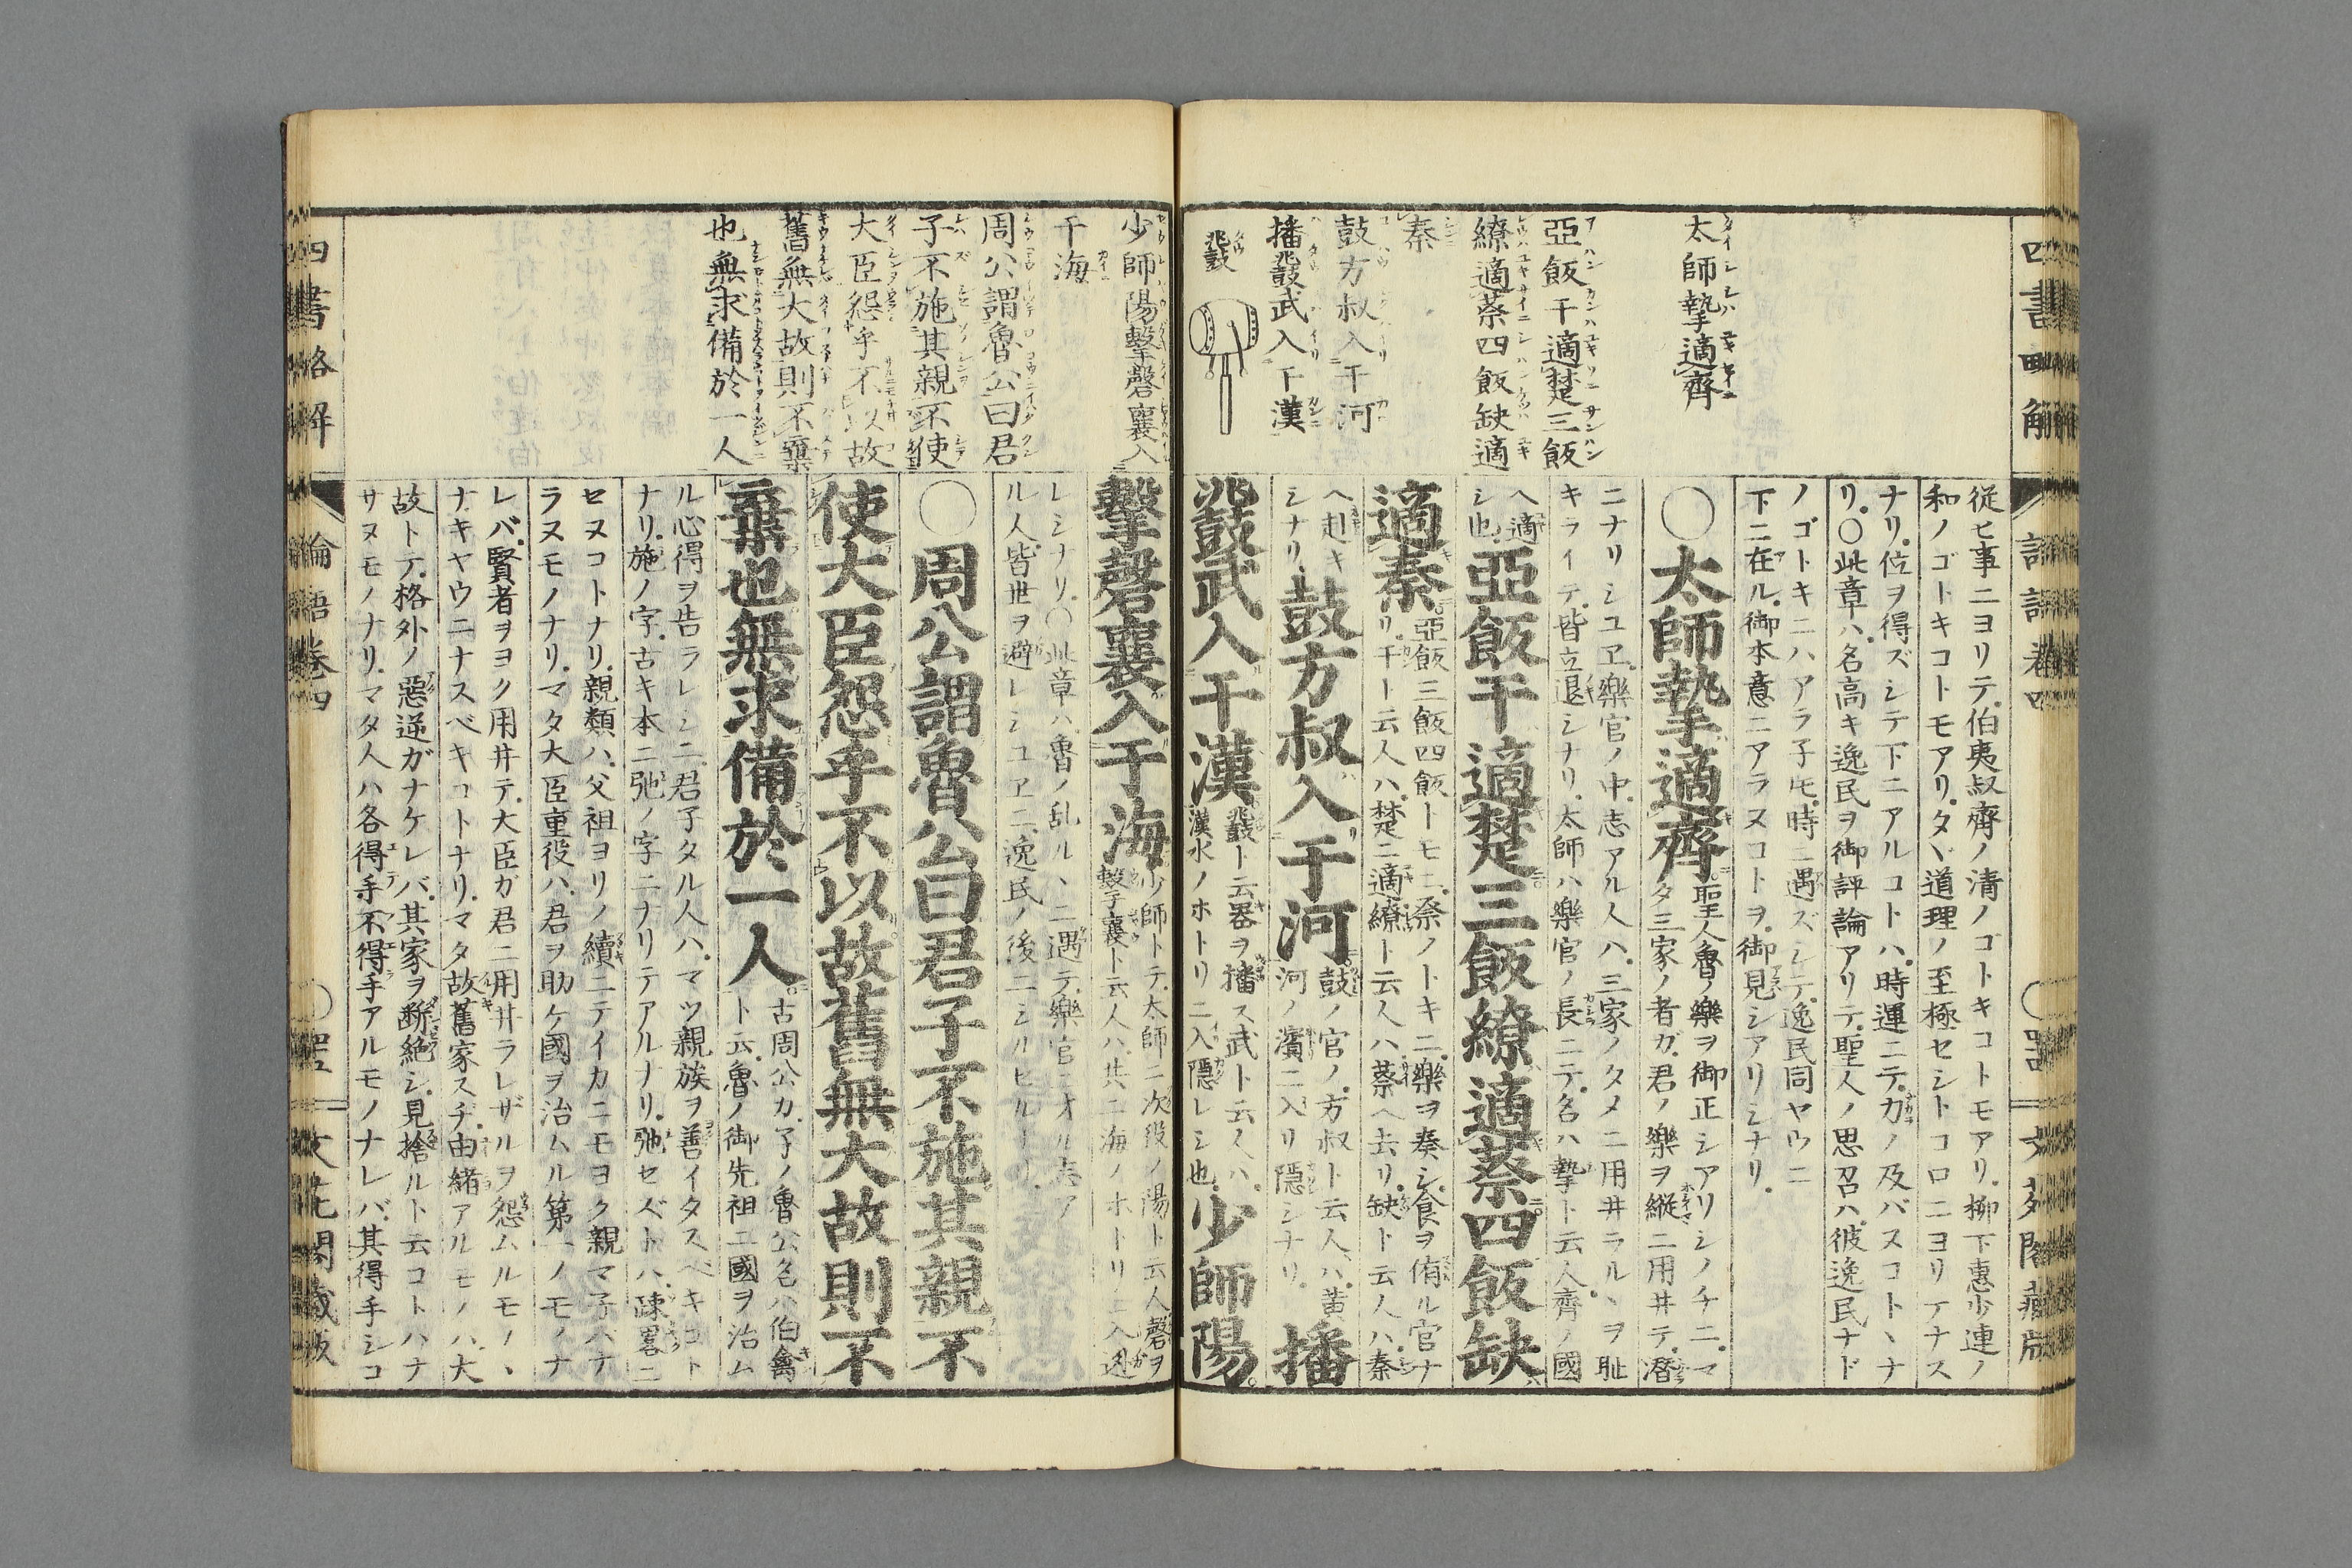 四書略解
論語卷四
太師摯適齊
亞飯干適楚三飯
繚適蔡四飯缺適
秦
鼓方叔入干河
播鼗武入干漢
鼗
従ヒ事ニヨリテ伯夷叔齊ノ清ノゴトキコトモアリ柳下惠少連ノ
和ノゴトキコトモアリタヾ道理ノ至極セシトコロニヨリテナス
ナリ位ヲ得ズシテ下ニアルコトハ時運ニテカノ及バヌコトヽナ
リ○此章ハ名高キ逸民ヲ御評論アリテ聖人ノ思召ハ彼逸民ナド
ノゴトキニハアラ子𪜈時ニ遇ズシテ逸民同ヤウニ
下ニ在ル御本意ニアラヌコトヲ御見シアリシナリ
○太師摯適齊
聖人魯ノ樂ヲ御正シアリシノチニマ
タ三家ノ者ガ君ノ樂ヲ縱ニ用井テ潜
ニナリシユヱ樂官ノ中志アル人ハ三家ノタメニ用井ラルヽヲ耻
キライテ皆立退シナリ太師ハ樂官ノ長ニテ名ハ摯ト云人齊ノ國
ヘ適
シ也
亞飯干適楚三飯繚適蔡四飯缺
適秦
亞飯三飯四飯トモニ祭ノトキニ樂ヲ奏シ食ヲ侑ル官ナ
リ干ト云人ハ楚ニ適繚ト云人ハ蔡ヘ去リ缺ト云人ハ秦
ヘ赴キ
シナリ
鼓方叔入干河
鼓ノ官ノ方叔ト云人ハ黃
河ノ濱ニ入リ隱シナリ
播
鼗武入干漢
鼗ト云器ヲ播ス武ト云人ハ
漢水ノホトリニ入隱レシ也
少師陽
少師陽擊磬襄入
干海
周公謂魯公曰君
子不施其親不使
大臣怨乎不以故
舊無大故則不棄
也無求備於一人
擊磬襄入于海
少師トテ太師ニ次役ノ陽ト云人磬ヲ
擊子襄ト云人ハ共ニ海ノホトリニ入迯
レシナリ○此章ハ魯ノ乱ルヽニ遇テ樂官ニオル志ア
ル人皆世ヲ避レシユヱニ逸民ノ後ニシルセルナリ
○周公謂魯公曰君子不施其親不
使大臣怨乎不以故舊無大故則不
棄也無求備於一人
古周公カ子ノ魯公名ハ伯禽
ト云魯ノ御先祖ニ國ヲ治ム
ル心得ヲ告ラレシニ君子タル人ハマツ親族ヲ善イタスベキコト
ナリ施ノ字古キ本ニ弛ノ字ニナリテアルナリ弛セズトハ疎畧ニ
セヌコトナリ親類ハ父祖ヨリノ續ニテイカニモヨク親マ子バナ
ラヌモノナリマタ大臣重役ハ君ヲ助ケ國ヲ治ムル第一ノモノナ
レバ賢者ヲヨク用井テ大臣ガ君ニ用井ラレザルヲ怨ムルモノヽ
ナキヤウニナスベキコトナリマタ故舊家スヂ由緒アルモノハ大
故トテ格外ノ惡逆ガナケレバ其家ヲ断絶シ見捨ルト云コトハナ
サヌモノナリマタ人ハ各得手不得手アルモノナレバ其得手シコ
四書略解
論語卷四